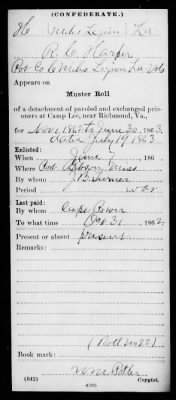 (CONFEDERATE.)
H Miss Legion
R. C. Harper
Co. C Miss Legion Vols
Appears on
Muster Roll
of a detachment of paroled and exchanged prisoners
at Camp Lee, near Richmond, Va.,
for Nov 1 to June 30, 1863.
dated July 19 1863
Enlisted:
When June 7, 186
Where Miss
By whom J B Turner
Period war
Last paid:
By whom Capt
To what time Oct 31, 1862
Present or absent present
Remarks:
(Roll No 22)
Book mark:
(642) Copyist.